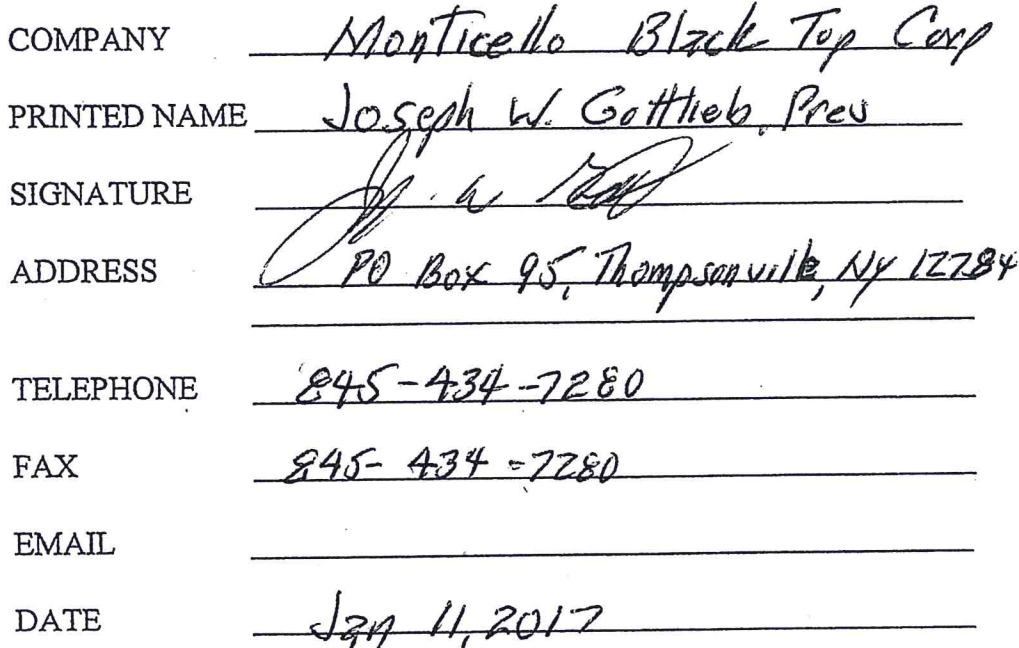 COMPANY Monticello Black Top Corp
PRINTED NAME Joseph W. Gottlieb, Pres
SIGNATURE
ADDRESS PO Box 95, Thompsonville, NY 12784
TELEPHONE 845-434-7280
FAX 845-434-7280
EMAIL
DATE Jan 11, 2017